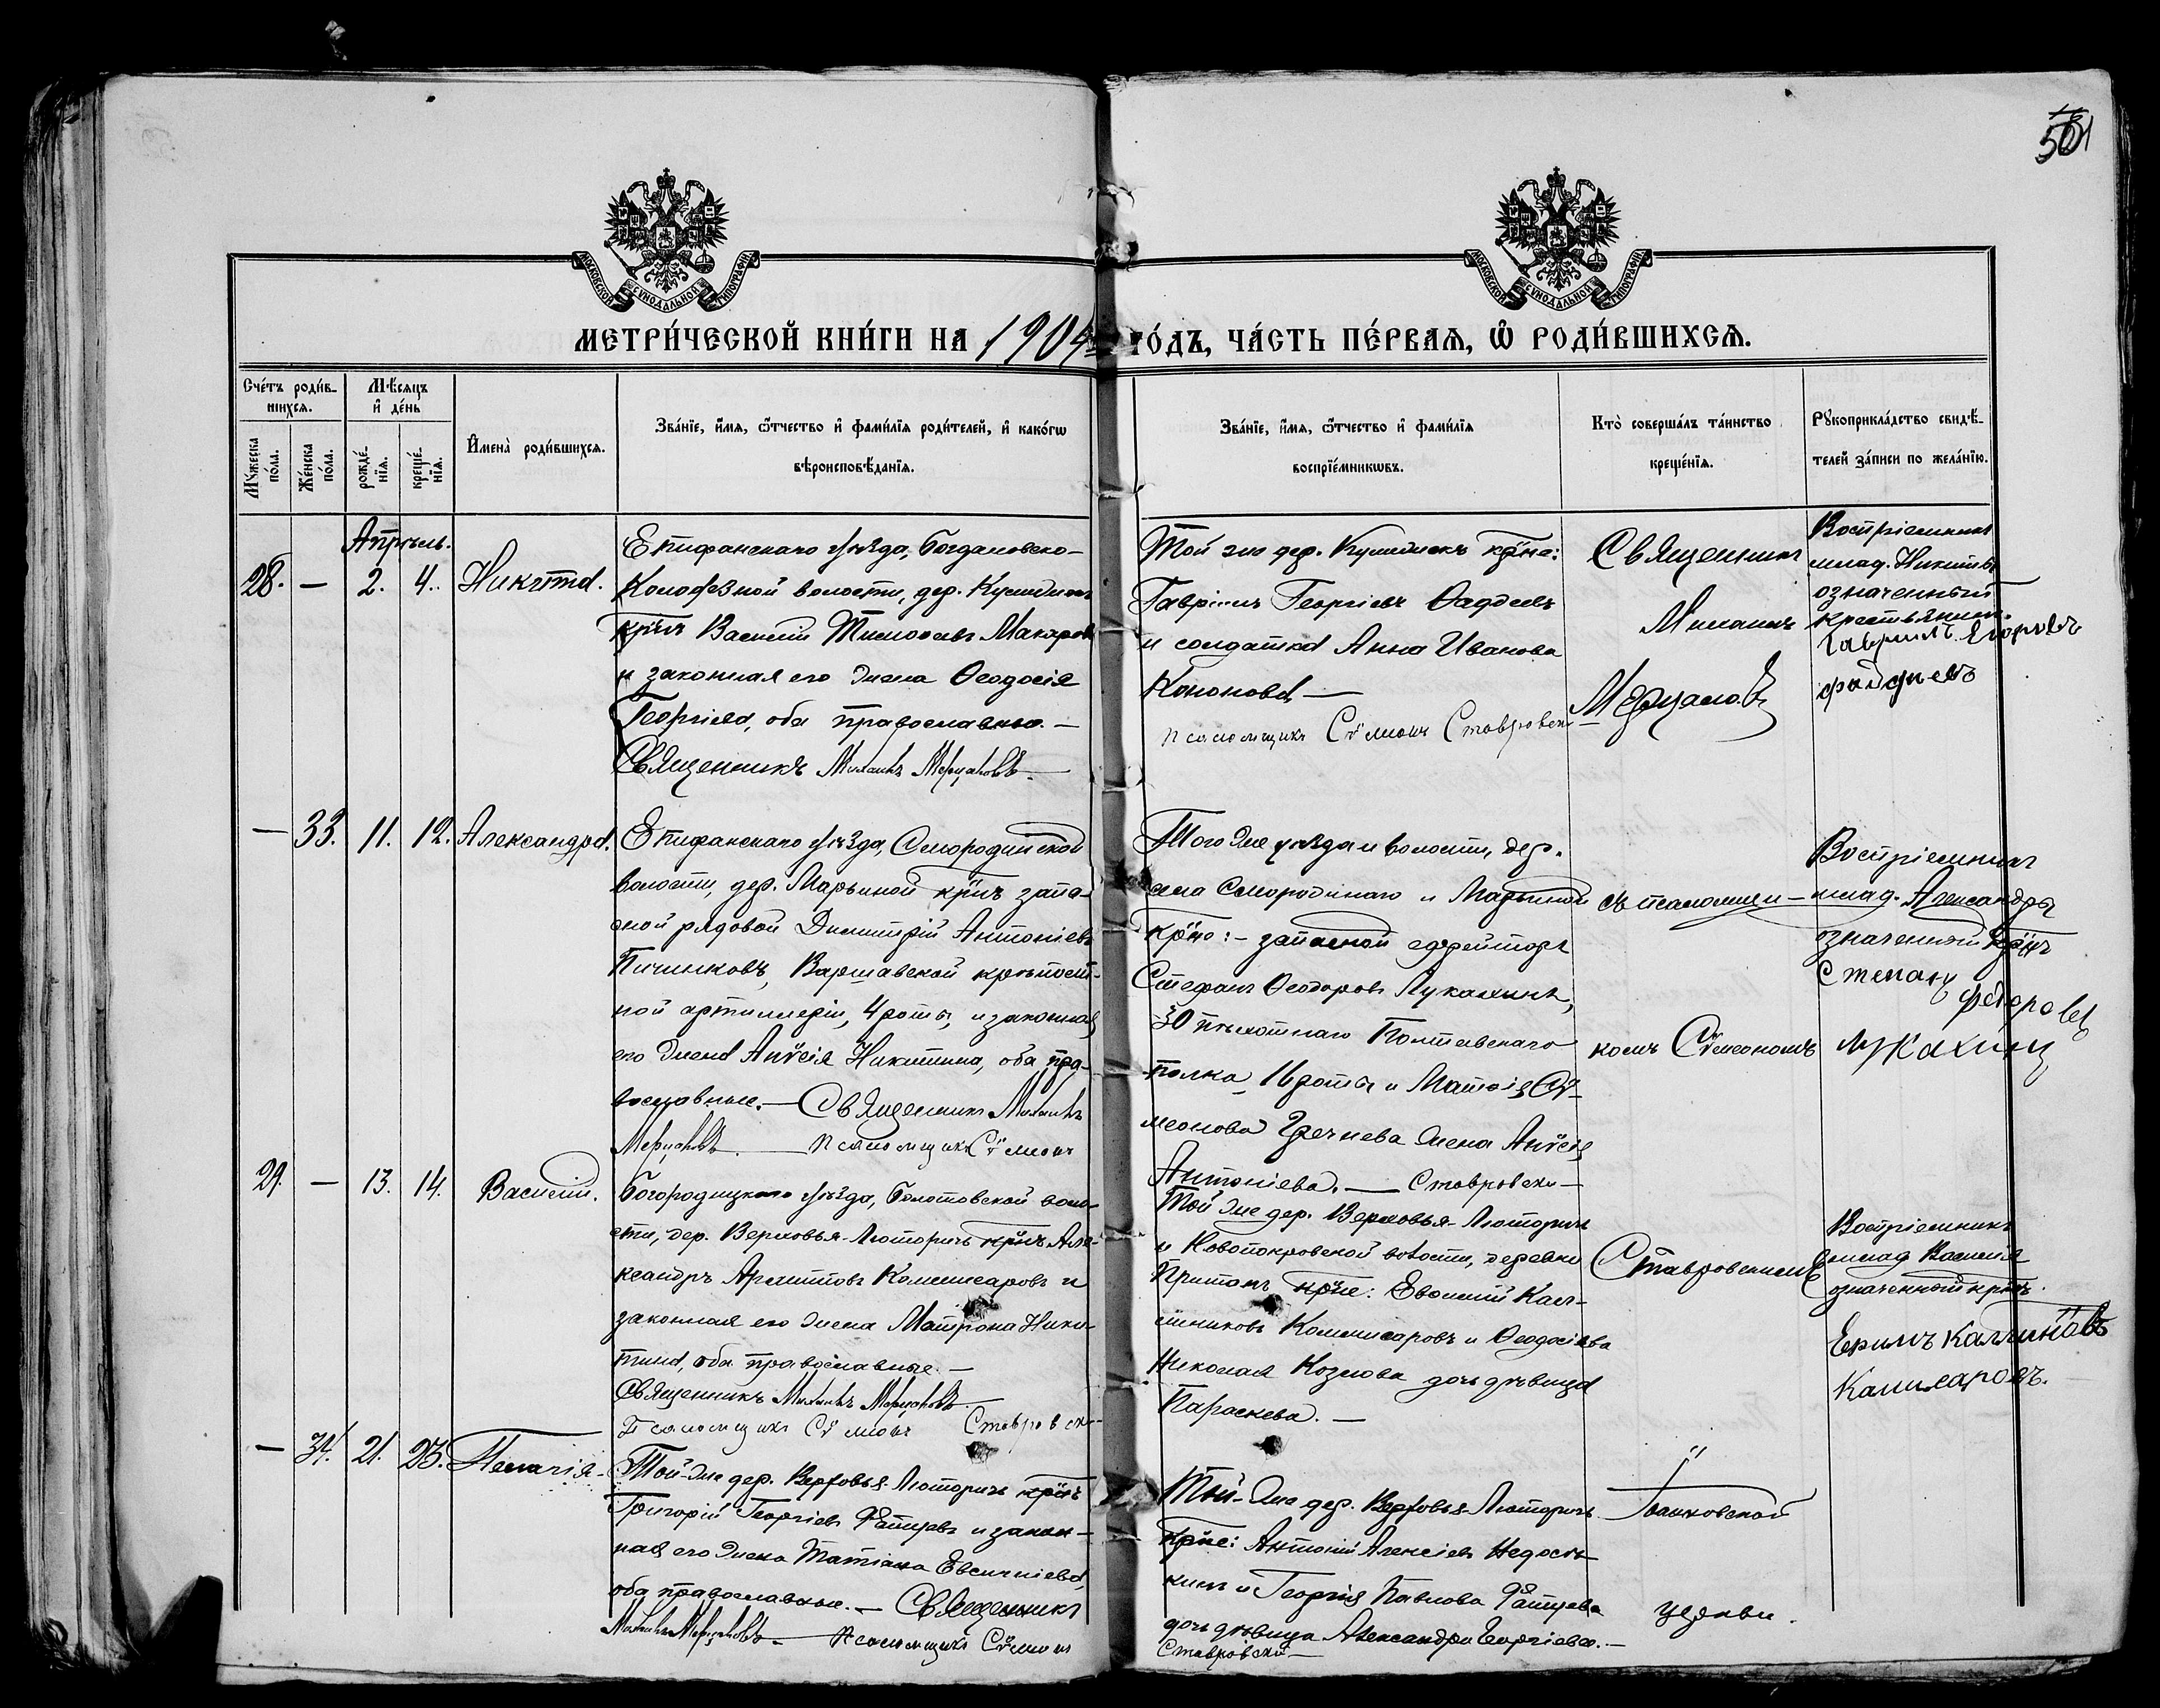 501
МОСКОВСКОЙ СѴНОДАЛЬНОЙ ТИПОГРАФІИ
МОСКОВСКОЙ СѴНОДАЛЬНОЙ ТИПОГРАФІИ
МЕТРИ́ЧЕСКОЙ КНИ́ГИ НА 1904 ГО́ДЪ, ЧА́СТЬ ПЕ́РВАѦ, Ѽ РОДИ́ВШИХСѦ.
Сче́тъ роди́в-
шихсѧ.
Мꙋ́жеска по́ла.
Же́нска по́ла.
Мѣ́сѧцъ
и҆ де́нь
рожде́нїѧ.
креще́нїѧ.
И҆мена̀ роди́вшихсѧ.
Зва́нїе, и҆́мѧ, ѻ҆́тчество и҆ фами́лїѧ роди́телей, и҆ како́гѡ
вѣроисповѣ́данїѧ.
Зва́нїе, и҆́мѧ, ѻ҆́тчество и҆ фами́лїѧ
воспрїе́мникѡвъ.
Кто̀ соверша́лъ та́инство
креще́нїѧ.
Рꙋкоприкла́дство свидѣ́-
телей за́писи по жела́нїю.
Апрѣль.
28. — 2. 4. Никита.
Епифанскаго уѣзда, Богдановско-
Колодезной волости, дер.
кр̃нъ Василій Тимоѳеевъ Макаровъ
и законная его жена Ѳеодосія
Георгіева, оба православные. —
Священникъ Миланъ Мерцаловъ. —
Той же дер. кр̃не:
Гавріилъ Георгіевъ Ѳадѣевъ
и солдатка Анна Иванова
Кононова —
Псаломщикъ Сѵмеонъ Ставровскій
Священникъ
Миланъ
Мерцаловъ
Воспріемникъ
млад. Никиты
означенный
крестьянинъ
Гаврилъ Егоровъ
фадѣевъ
— 33. 11. 12. Александра.
Епифанскаго уѣзда, Смородинской
волости, дер. Марьиной кр̃нъ запа-
сной рядовой Димитрій Антоніевъ
Пичинковъ, Варшавской крѣпост-
ной артиллеріи, 4 роты, и законная
его жена Анѵсія Никитина, оба пра-
вославные. — Священникъ Миланъ
Мерцаловъ. — Псаломщикъ Сѵмеонъ
Того же уѣзда и волости, дер.
села Смородинаго и Марьиной
кр̃не: — запасной ефрейторъ
Стефанъ Ѳеодоровъ Лукахинъ,
30 пѣхотнаго Полтавскаго
полка, 16 роты и Матѳія Сѵ-
меонова Гречнева жена Анѵсія
Антоніева. — Ставровскій —
съ псаломщи-
комъ Сѵмеономъ
Воспріемникъ
млад. Александры
означенный кр̃нъ
Степанъ
Федоровъ
Лукахинъ
29. — 13. 14. Василій.
Богородицкаго уѣзда, Болотовской воло-
сти, дер. Верховья-Люторичъ кр̃нъ Але-
ксандръ Архиповъ Коммисаровъ и
законная его жена Матрона Ники-
тина, оба православные. —
Священникъ Миланъ Мерцаловъ. —
Псаломщикъ Сѵмеонъ Ставровскій
Той же дер. Верховья-Люторичъ
и Новопокровской волости, деревни
кр̃не: Евѳимій Кал-
линиковъ Коммисаровъ и Ѳеодосіева
Николая Козлова дочь дѣвица
Параскева. —
Ставровскимъ
Воспріемникъ
млад Василія
означенный кр̃нъ.
Ефимъ Каллиновъ
Камисаровъ.
— 34. 21. 23. Пелагія.
Той-же дер. Верховья-Люторичъ кр̃нъ
Григорій Георгіевъ и закон-
ная его жена Татіана Евсигніева,
оба православные. — Священникъ
Миланъ Мерцаловъ. — Псаломщикъ Сѵмеонъ
Той-же дер. Верховья Люторичъ
кр̃не: Антоній Алексіевъ Недось-
кинъ и Георгія Павлова
дочь дѣвица Александра Георгіева. —
Ставровскій —
церкви.